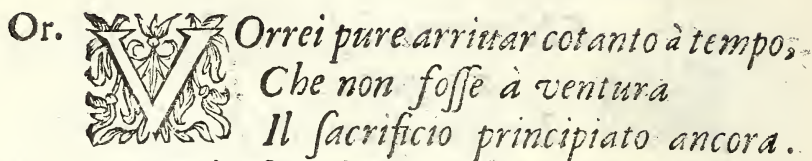 Or. VOrrei pure arriuar cotanto à tempo,
Che non foſſe à ventura
Il ſacrificio principiato ancora.